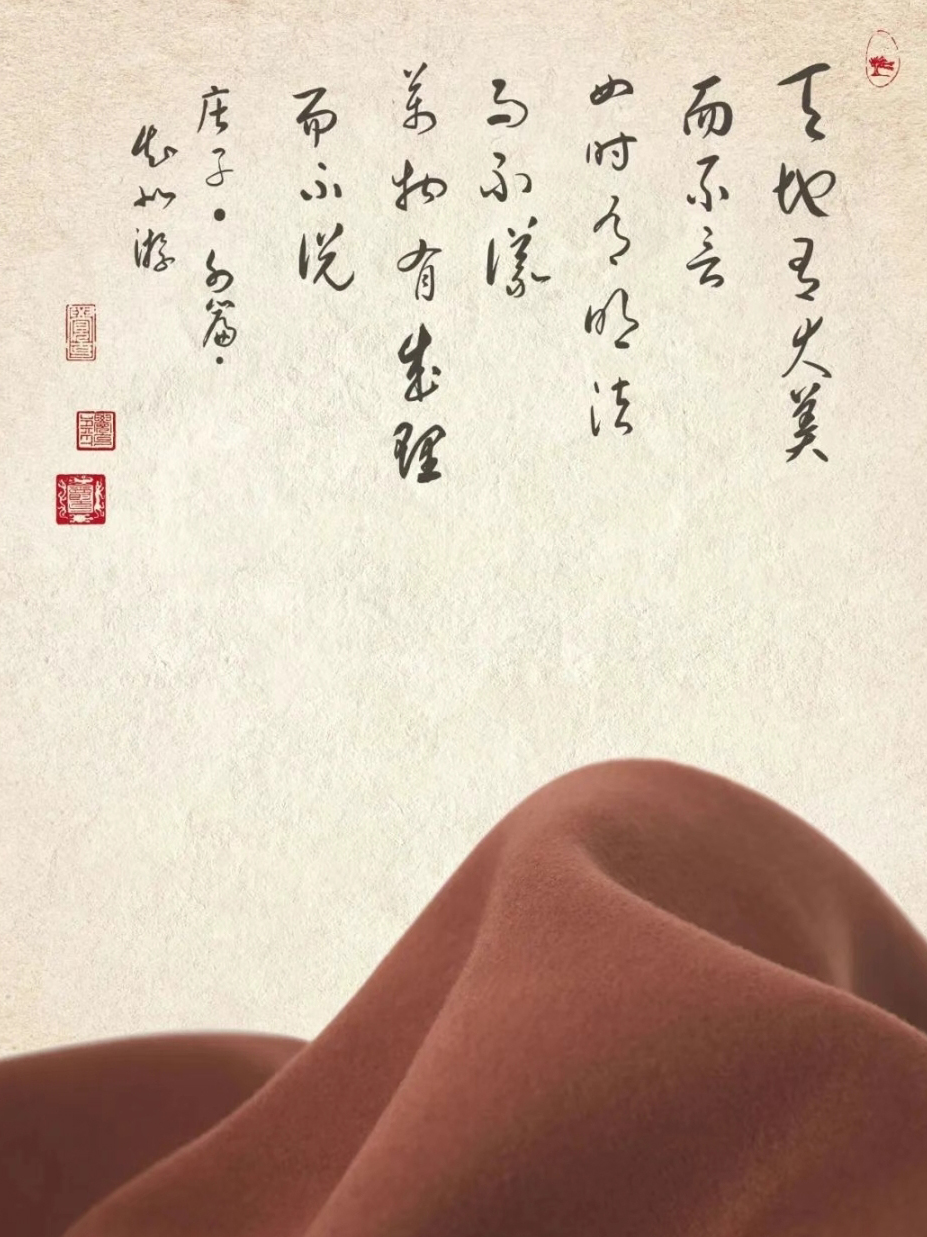 天地有大美
而不言
四时有明法
而不议
万物有成理
而不说
庄子·外篇·
知北游